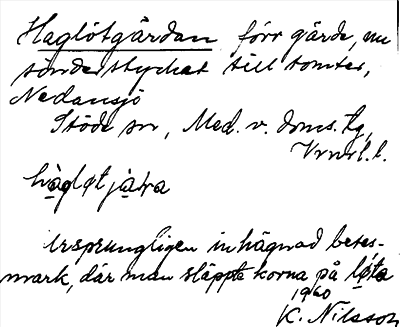 Haglötgärdan förr gärde, nu
sönderstyckat till tomter,
Nedansjö
Stöde sn, Med. v. doms. tg,
Vrnrl. l.
Ursprungligen inhägnad betes-
mark, där man släppte korna på løta
1960
K. Nilsson